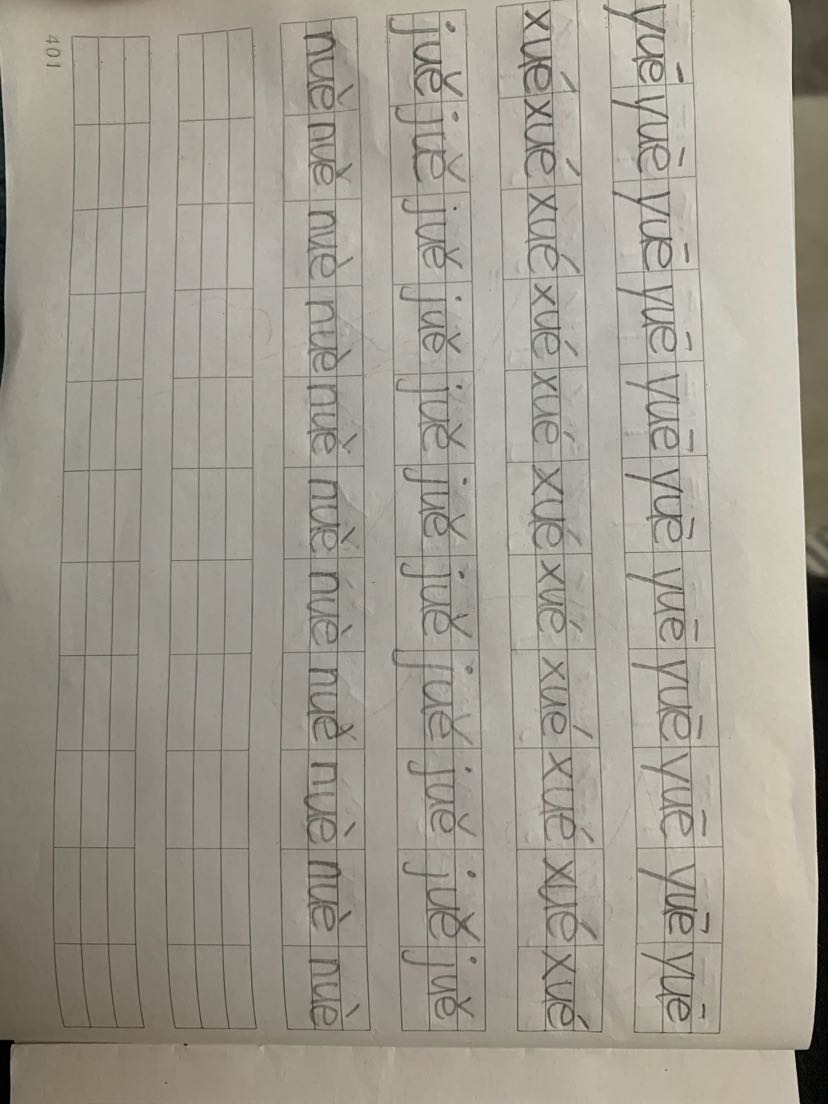 yuē yuē yuē yuē yuē yuē yuē yuē yuē yuē yuē
xué xué xué xué xué xué xué xué xué xué xué
juě juě juě juě juě juě juě juě juě juě juě
nuè nuè nuè nuè nuè nuè nuè nuè nuè nuè nuè
401